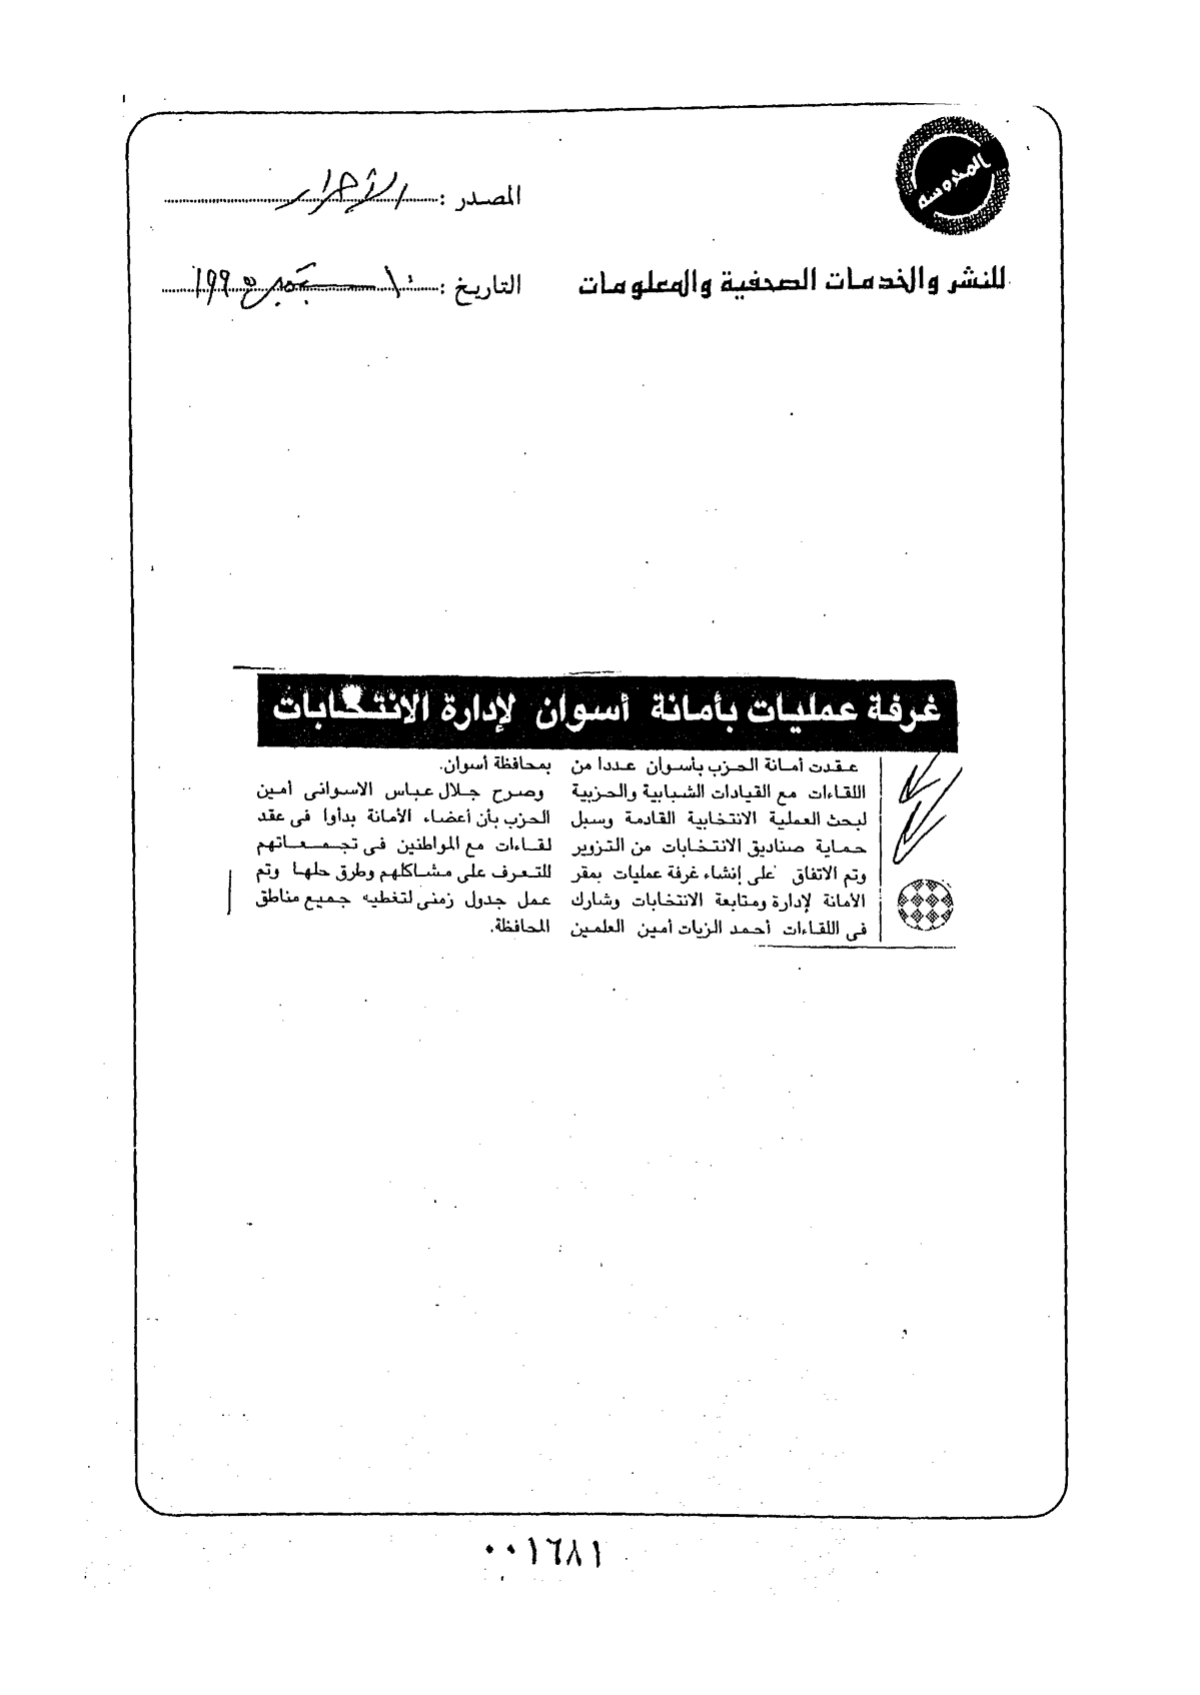 المحروسة
المصدر : الأحرار
للنشر والخدمات الصحفية والمعلومات
التاريخ : ١٠ سبتمبر ١٩٩٥
غرفة عمليات بأمانة أسوان لإدارة الانتخابات
عقدت أمانة الحزب بأسوان عددا من
اللقاءات مع القيادات الشبابية والحزبية
لبحث العملية الانتخابية القادمة وسبل
حماية صناديق الانتخابات من التزوير
وتم الاتفاق على إنشاء غرفة عمليات بمقر
الأمانة لإدارة ومتابعة الانتخابات وشارك
فى اللقاءات أحمد الزيات أمين العلمين
بمحافظة أسوان.
وصرح جلال عباس الاسوانى أمين
الحزب بأن أعضاء الأمانة بدأوا فى عقد
لقاءات مع المواطنين فى تجمعاتهم
للتعرف على مشاكلهم وطرق حلها وتم
عمل جدول زمنى لتغطيه جميع مناطق
المحافظة.
٠٠١٦٨١